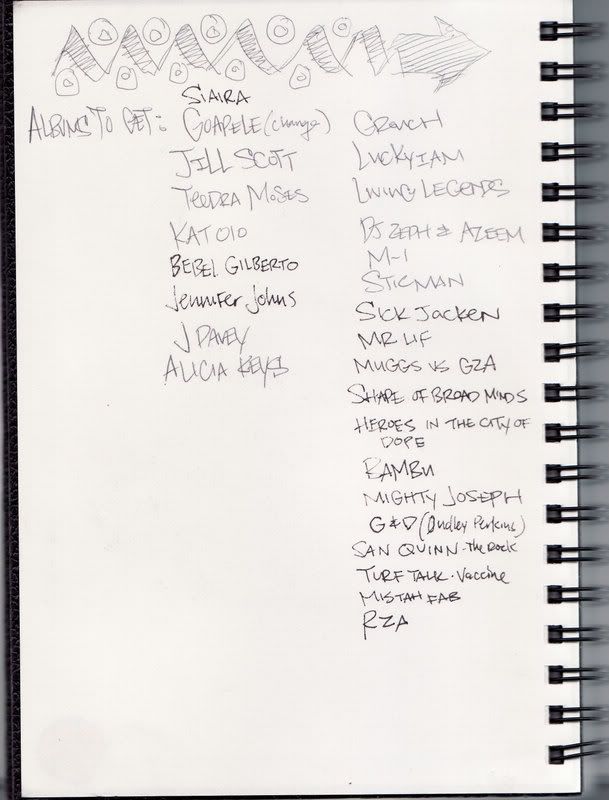 ALBUMS TO GET:
SIAIRA
GOAPELE (change)
JILL SCOTT
TEEDRA MOSES
KAT 010
BEBEL GILBERTO
Jennifer Johns
J DAVEY
ALICIA KEYS
GROUCH
LUCKYIAM
LIVING LEGENDS
DJ ZEPH & AZEEM
M-1
STICMAN
SICK JACKEN
MR LIF
MUGGS VS GZA
SHAPE OF BROAD MINDS
HEROES IN THE CITY OF
DOPE
BAMBU
MIGHTY JOSEPH
G&D (Dudley Perkins)
SAN QUINN - The Rock
TURF TALK - Vaccine
MISTAH FAB
RZA